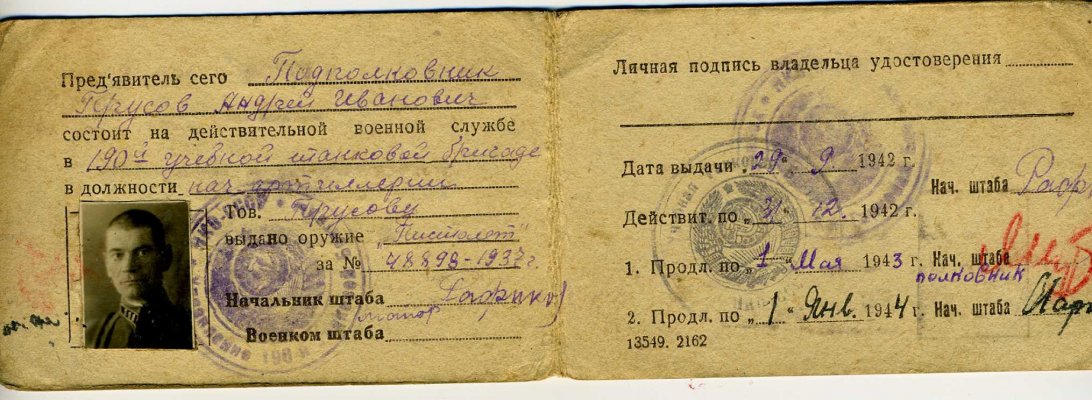 Пред'явитель сего Подполковник
Трусов Андрей Иванович
состоит на действительной военной службе
в 190й учебной танковой бригаде
в должности нач артиллерии
Тов. Трусову
выдано оружие „Пистолет"
за № 48898-1937 г.
Начальник штаба
майор
Военком штаба
Личная подпись владельца удостоверения
Дата выдачи „29" 9 1942 г.
Нач. штаба
Действит. по „31" 12. 1942 г.
1. Продл. по „1" Мая 1943 г. Нач. штаба
полковник
2. Продл. по „1" Янв. 1944 г. Нач. штаба
13549. 2162